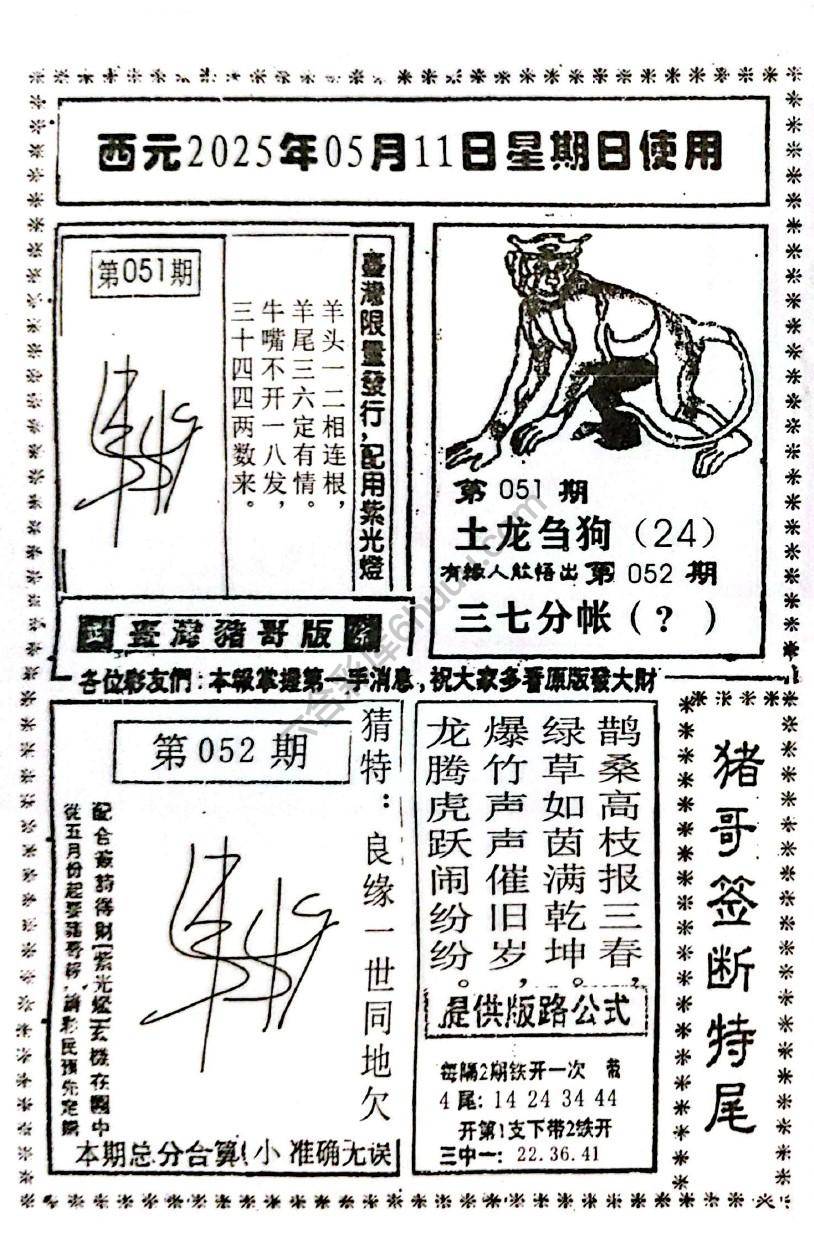 西元2025年05月11日星期日使用
第051期
臺灣限量發行，配用紫光燈
羊头一二相连根，
羊尾三六定有情。
牛嘴不开一八发，
三十四四两数来。
第 051 期
土龙刍狗（24）
有缘人能悟出 第 052 期
三七分帐（？）
臺灣豬哥版
各位彩友們：本報掌握第一手消息，祝大家多看原版發大財
第052期
猜特：良缘一世同地欠
從五月份起要豬哥報，請彩民預先定購
本期总分合算：小 准确无误
鹊桑高枝报三春，
绿草如茵满乾坤。
爆竹声声催旧岁，
龙腾虎跃闹纷纷。
提供版路公式
每隔2期铁开一次
4尾：14 24 34 44
开第1支下带2铁开
三中一：22.36.41
猪哥签断特尾
六合彩库6huu.com